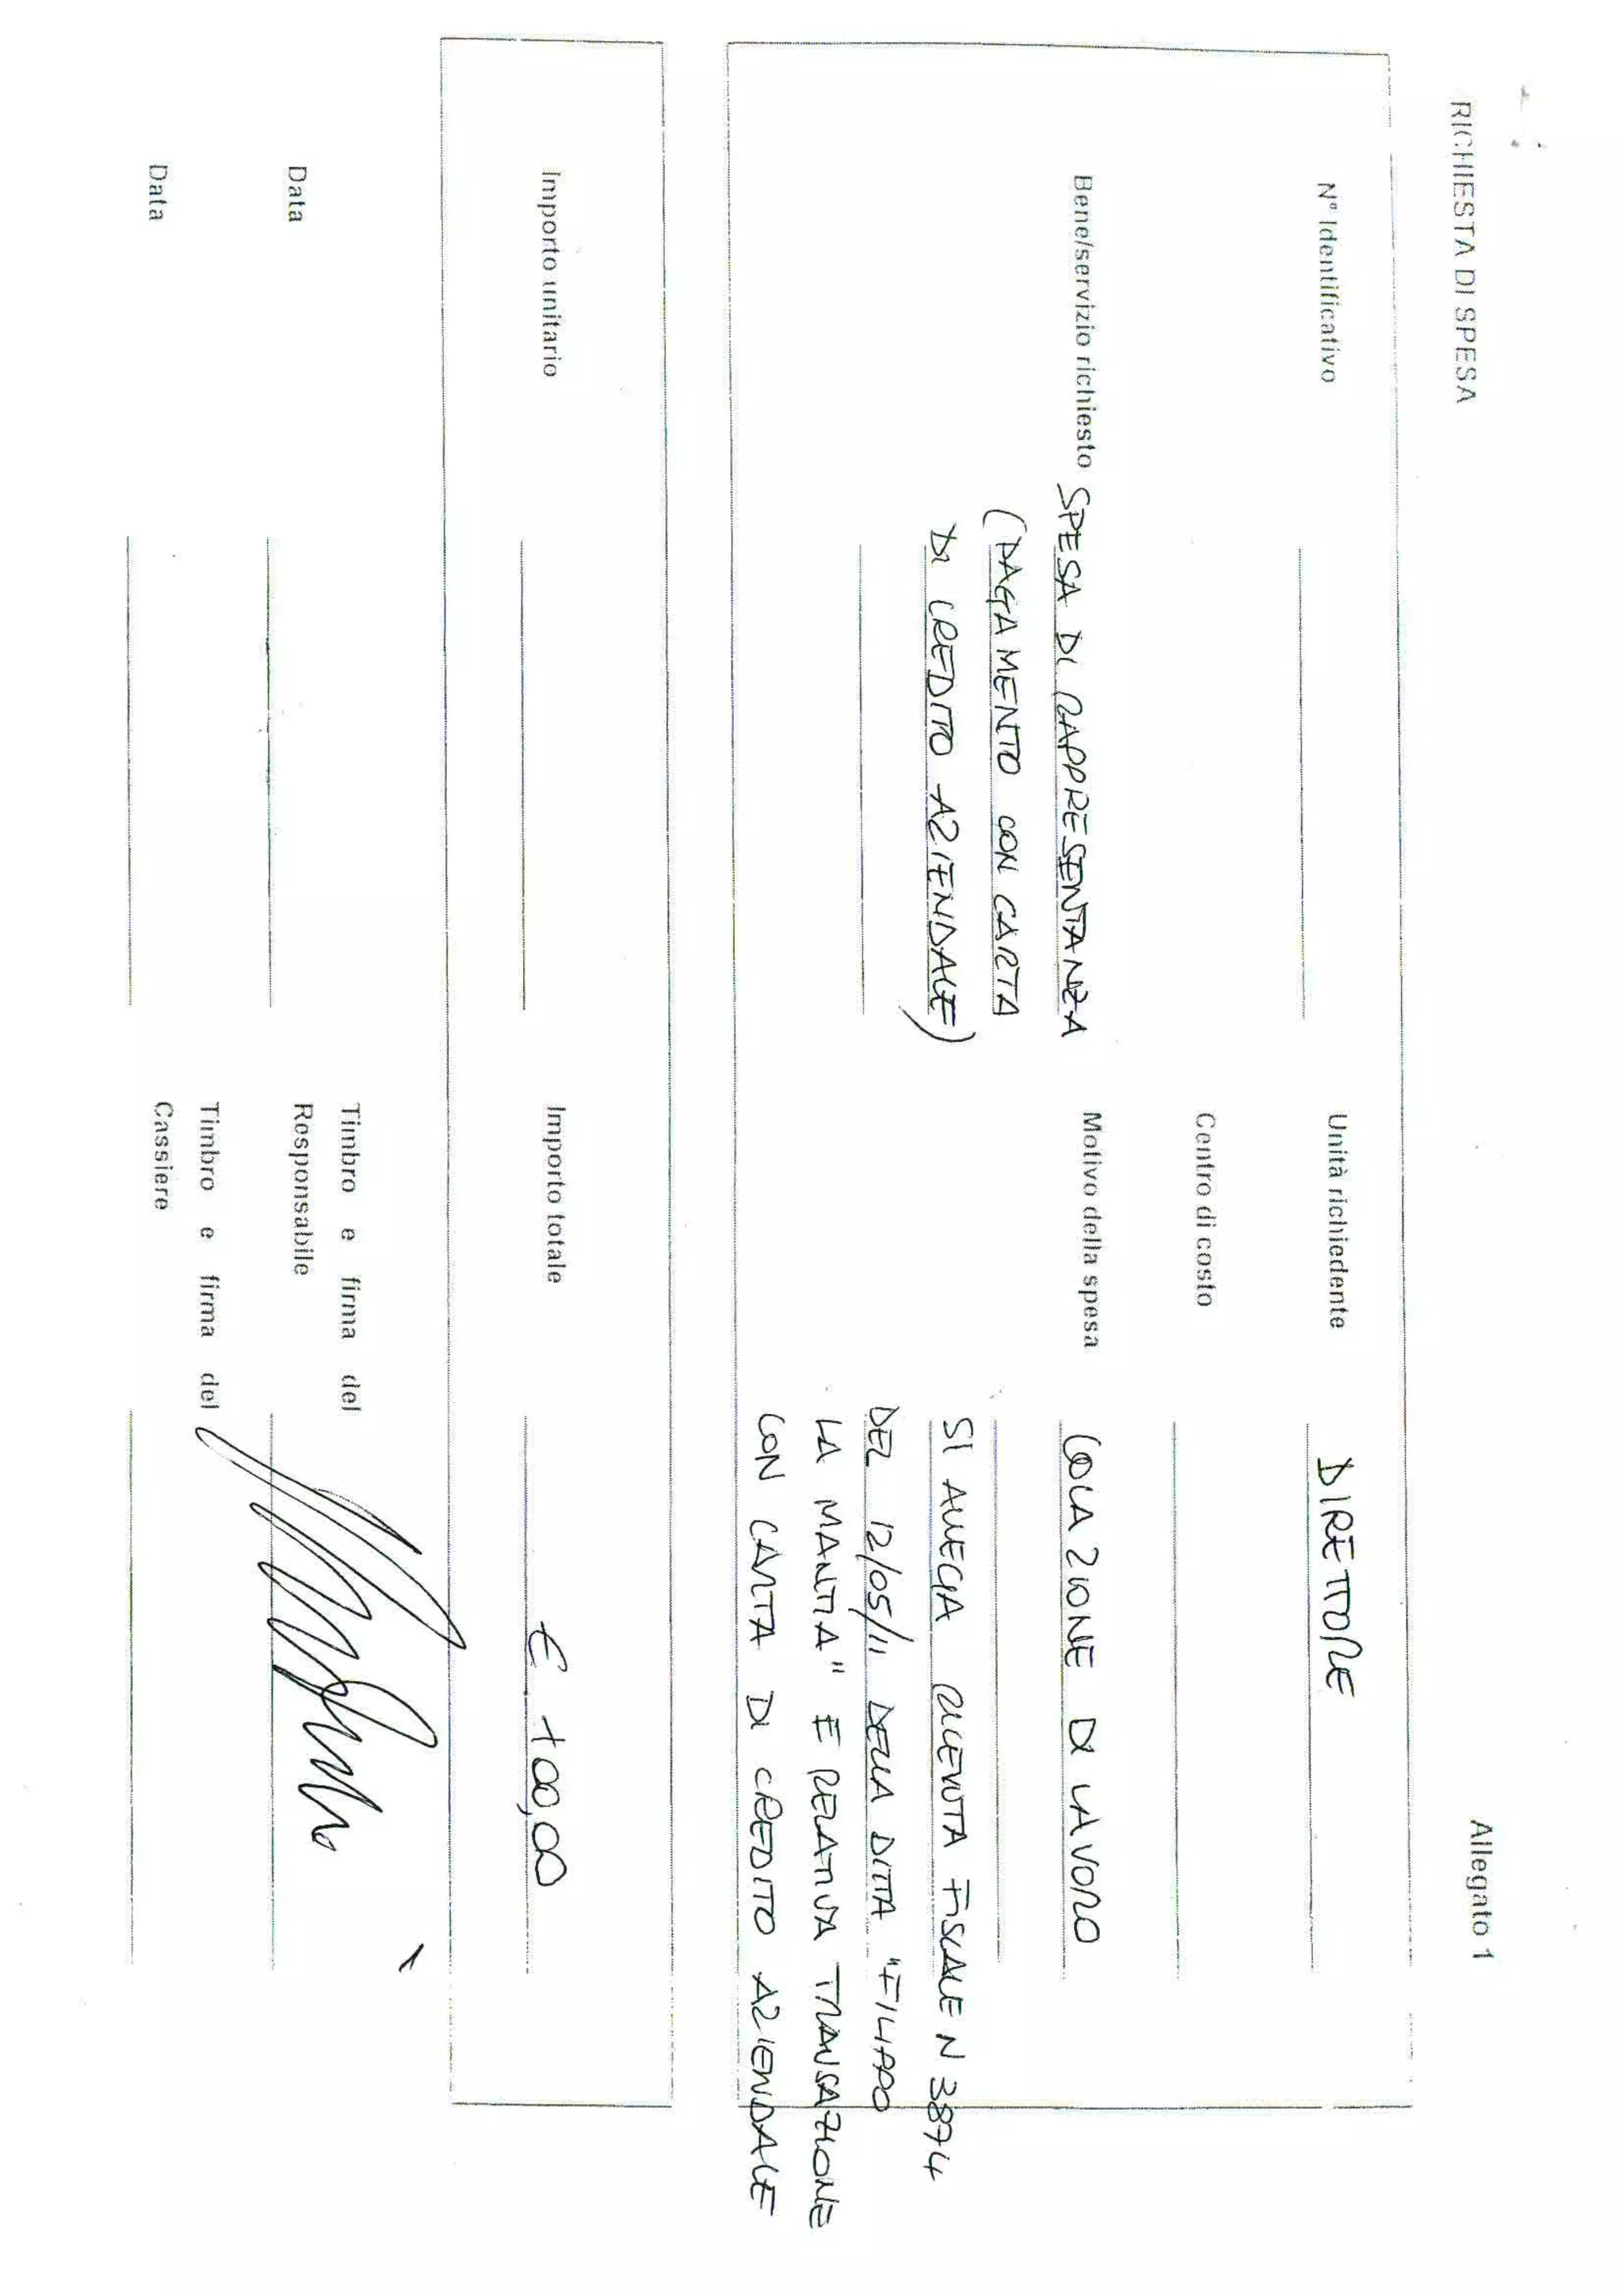 Allegato 1
RICHIESTA DI SPESA
N° Identificativo
Unità richiedente DIRETTORE
Centro di costo
Bene/servizio richiesto SPESA DI RAPPRESENTANZA
(PAGAMENTO CON CARTA
DI CREDITO AZIENDALE)
Motivo della spesa COLAZIONE DI LAVORO
SI ALLEGA RICEVUTA FISCALE N 3874
DEL 12/05/11 DELLA DITTA "FILIPPO
LA MANTIA" E RELATIVA TRANSAZIONE
CON CARTA DI CREDITO AZIENDALE
Importo unitario
Importo totale € 100,00
Data
Timbro e firma del
Responsabile
Data
Timbro e firma del
Cassiere